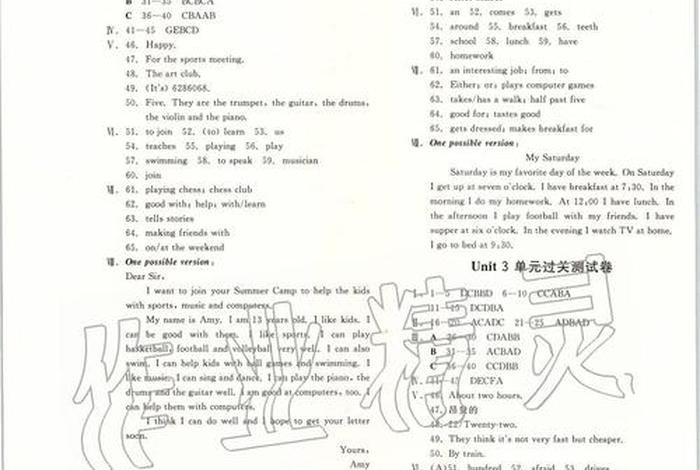 B 31—35 BCBCA
C 36—40 CBAAB
Ⅳ. 41—45 GEBCD
Ⅴ. 46. Happy.
47. For the sports meeting.
48. The art club.
49. (It's) 6286068.
50. Five. They are the trumpet, the guitar, the drums,
the violin and the piano.
Ⅵ. 51. to join 52. (to) learn 53. us
54. teaches 55. playing 56. play
57. swimming 58. to speak 59. musician
60. join
Ⅶ. 61. playing chess; chess club
62. good with; help; with/learn
63. tells stories
64. making friends with
65. on/at the weekend
Ⅷ. One possible version:
Dear Sir,
I want to join your Summer Camp to help the kids
with sports, music and computers.
My name is Amy. I am 13 years old. I like kids. I
can be good with them. I like sports. I can play
basketball, football and volleyball very well. I can also
swim. I can help kids with ball games and swimming. I
like music. I can sing and dance. I can play the piano, the
drums and the guitar well. I am good at computers, too. I
can help them with computers.
I think I can do well and I hope to get your letter
soon.
Yours,
Amy
Ⅵ. 51. an 52. comes 53. gets
54. around 55. breakfast 56. teeth
57. school 58. lunch 59. have
60. homework
Ⅶ. 61. an interesting job; from; to
62. Either; or; plays computer games
63. takes/has a walk; half past five
64. good for; tastes good
65. gets dressed; makes breakfast for
Ⅷ. One possible version:
My Saturday
Saturday is my favorite day of the week. On Saturday
I get up at seven o'clock. I have breakfast at 7:30. In the
morning I do my homework. At 12:00 I have lunch. In
the afternoon I play football with my friends. I have
supper at six o'clock. In the evening I watch TV at home.
I go to bed at 9:30.
Unit 3 单元过关测试卷
Ⅰ. 1—5 DCBBD 6—10 CCABA
11—15 DCDBA
Ⅱ. 16—20 ACADC 21—25 ADBAD
Ⅲ. A 26—30 CDABB
B 31—35 ACBAD
C 36—40 CCDBB
Ⅳ. 41—45 DECFA
Ⅴ. 46. About two hours.
47. 昂贵的
48. 22/Twenty-two.
49. They think it's not very fast but cheaper.
50. By train.
Ⅵ. (A)51. hundred 52. afraid 53. drives
作业精灵